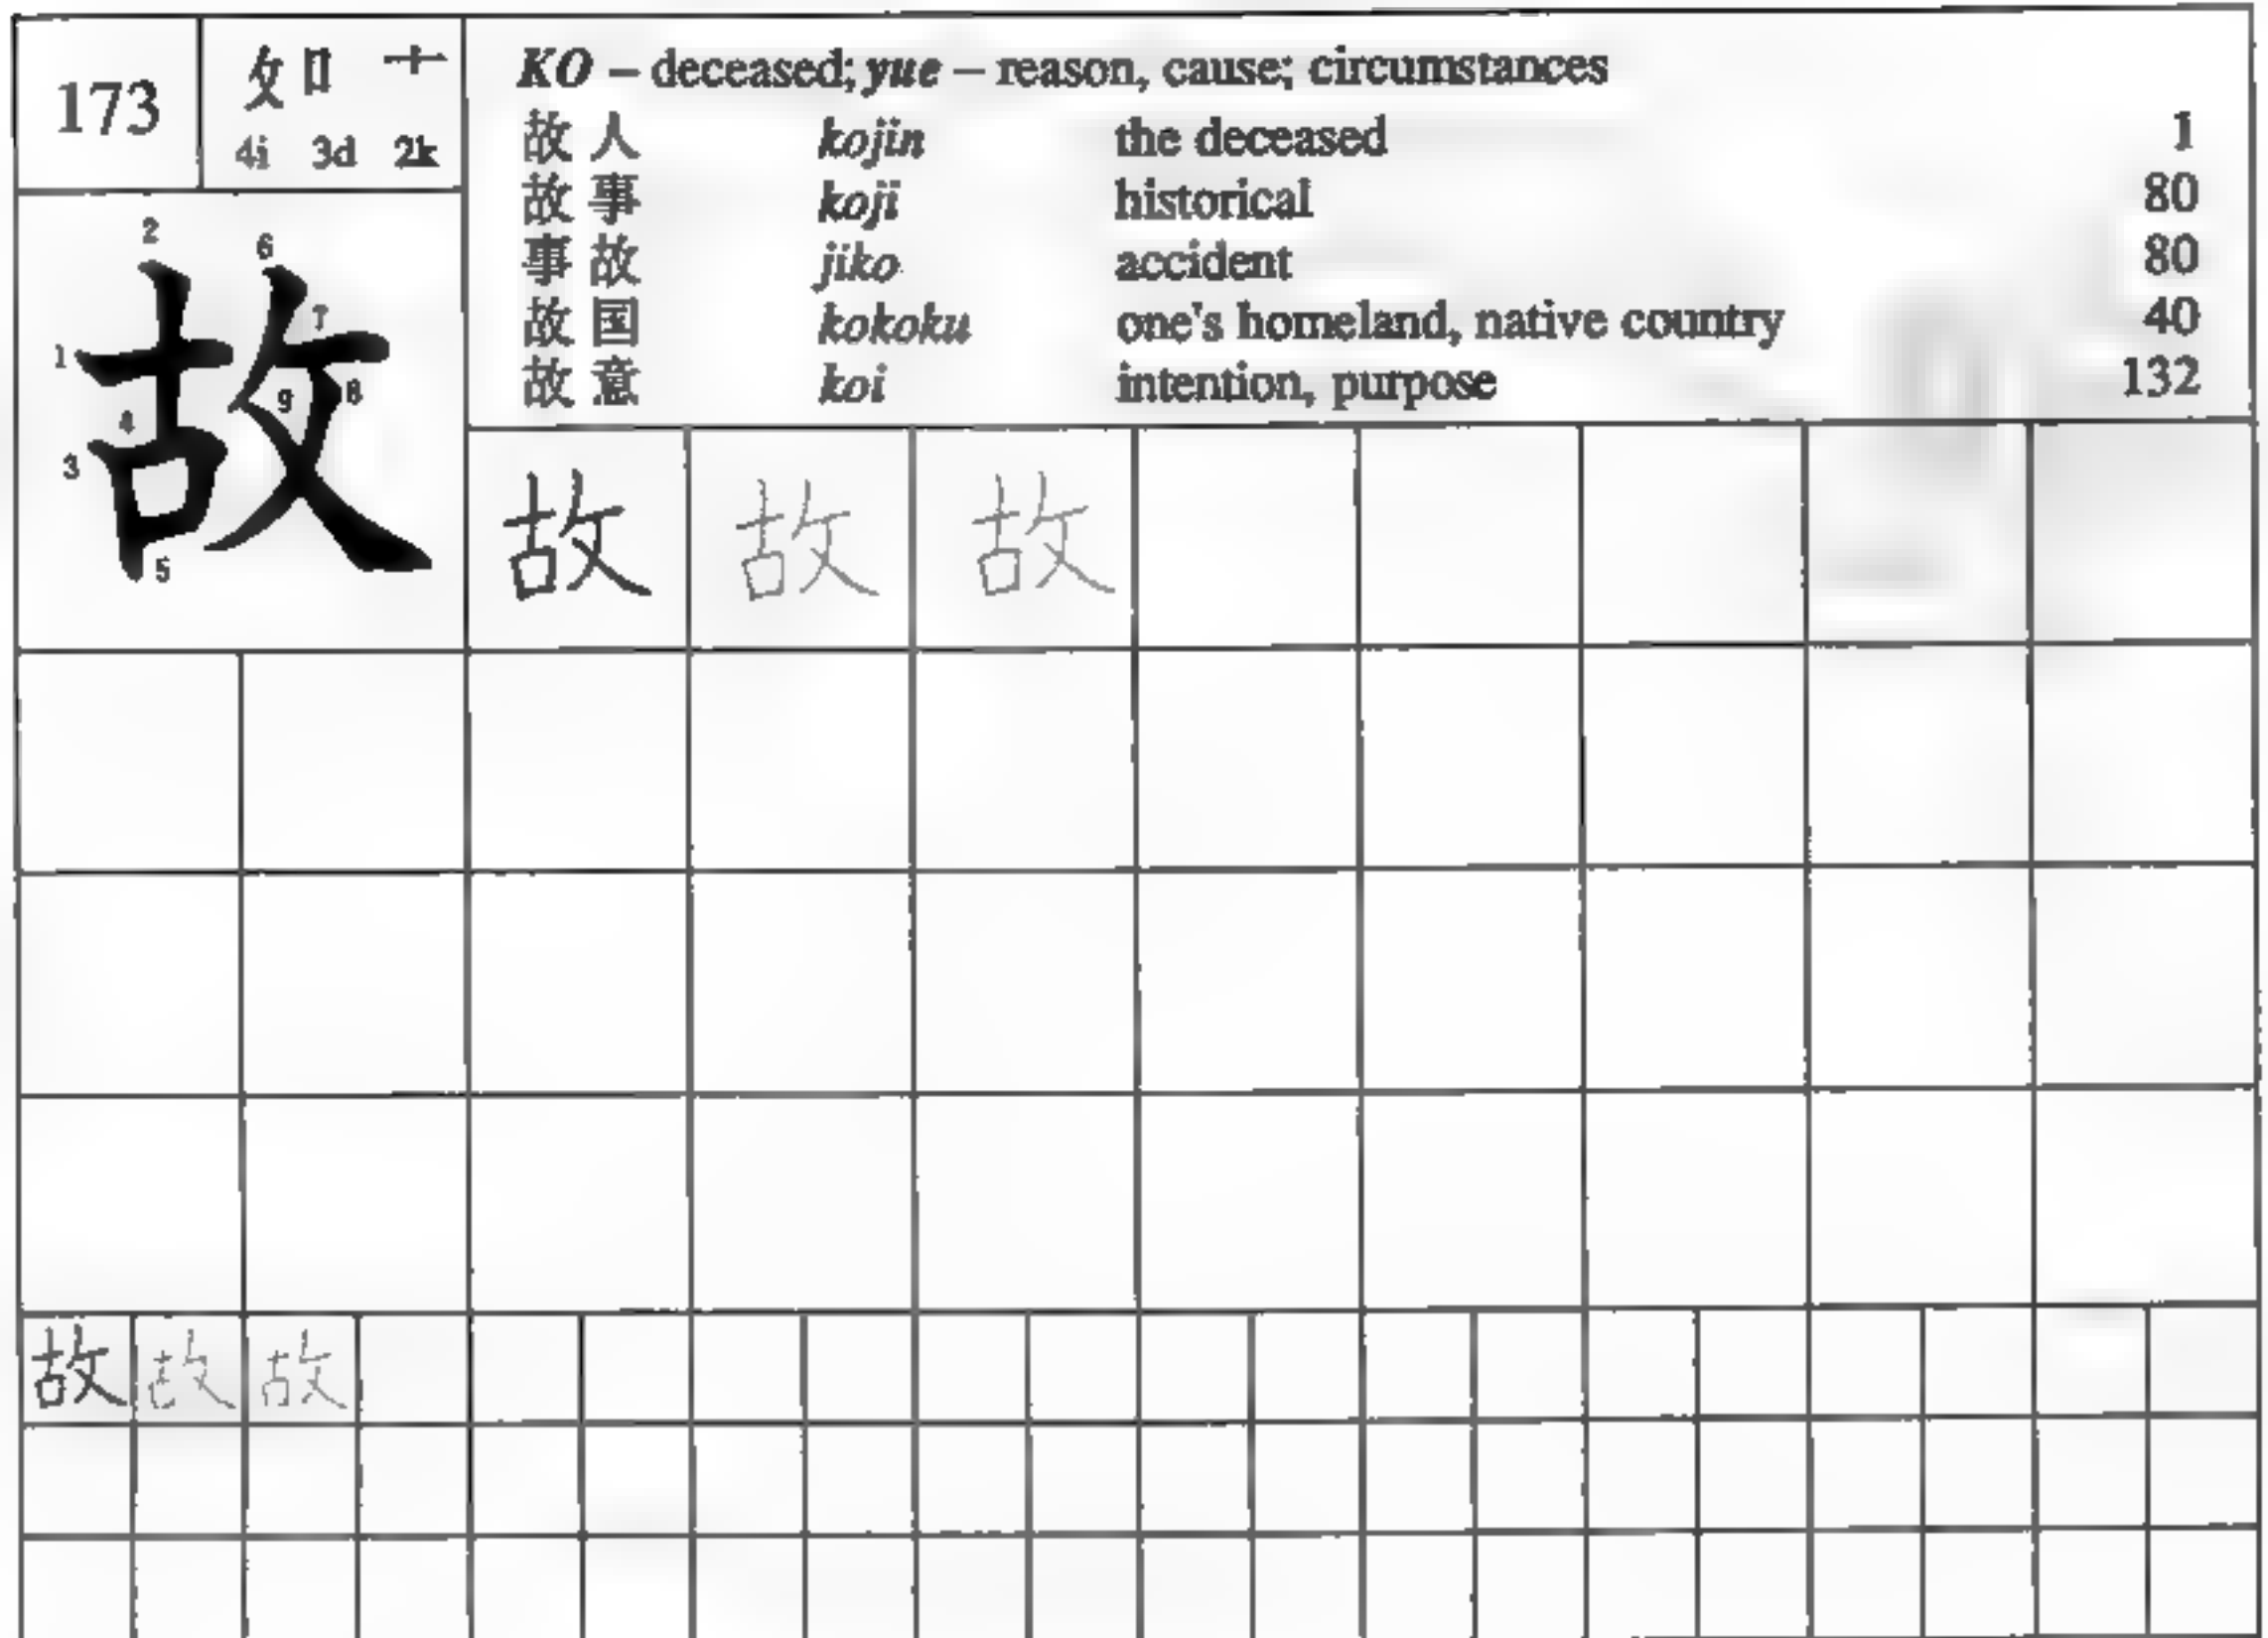 173
攵 口 十
4i 3d 2k
KO – deceased; yue – reason, cause; circumstances
故人 kojin the deceased 1
故事 koji historical 80
事故 jiko accident 80
故国 kokoku one's homeland, native country 40
故意 koi intention, purpose 132
2 6
7
1
9 8
4
3
5
故
故 故 故
故 故 故